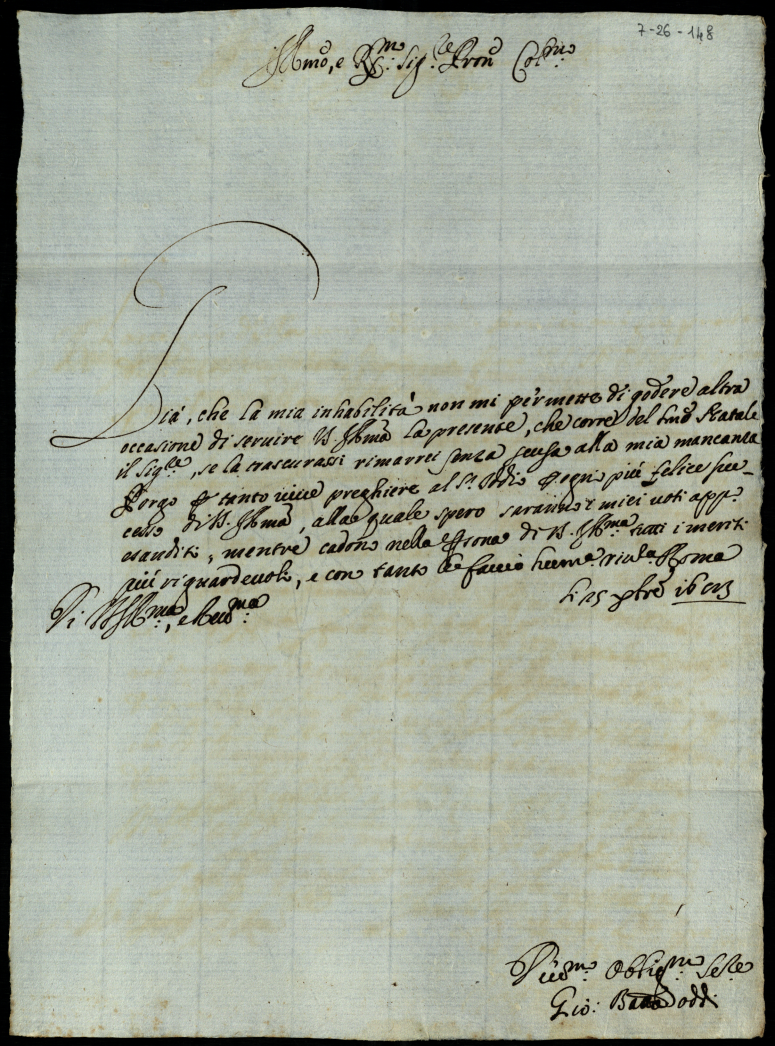 7-26-148
Illmo, e Rmo: Sigre Pron Colmo:
Già, che la mia inhabilità non mi permette di godere altra
occasione di seruire VS Illma la presente, che corre del Smo Natale
il Sigre, se la trascurassi rimarrei senza scusa alla mia mancanza
Porgo tanto preghiere al Sr. Iddio ogni più felice suc-
cesso di V.S. Illma, alla quale spero saranno i miei uoti app:
esauditi, mentre cadono nella psona di V.S. Illma tutti i meriti
più riguardeuoli, e con tanto le faccio humma riuza Roma
Di VS Illma, e Reuma:
li 25 xbre
Diuomo: Obligmo Serre
Gio: Batta Oddi